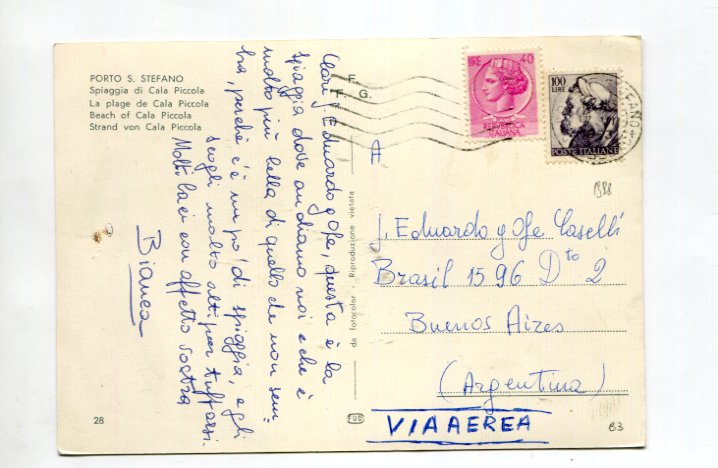 PORTO S. STEFANO
Spiaggia di Cala Piccola
La plage de Cala Piccola
Beach of Cala Piccola
Strand von Cala Piccola
Cari J. Eduardo y Ofe, questa è la
spiaggia dove andiamo noi e che è
molto più bella di quello che non sem-
bra, perchè c'è un po' di spiaggia, e gli
scogli molto alti per tuffarsi.
Molti baci con affetto vostra
Bianca
28
F.
F. G.
da fotocolor - Riproduzione vietata
FUB
LIRE 40
REPUBBLICA
ITALIANA
100
LIRE
POSTE ITALIANE
EFANO
A
J. Eduardo y Ofe Caselli
Brasil 1596 Dto 2
Buenos Aires
(Argentina)
VIA AEREA
B3